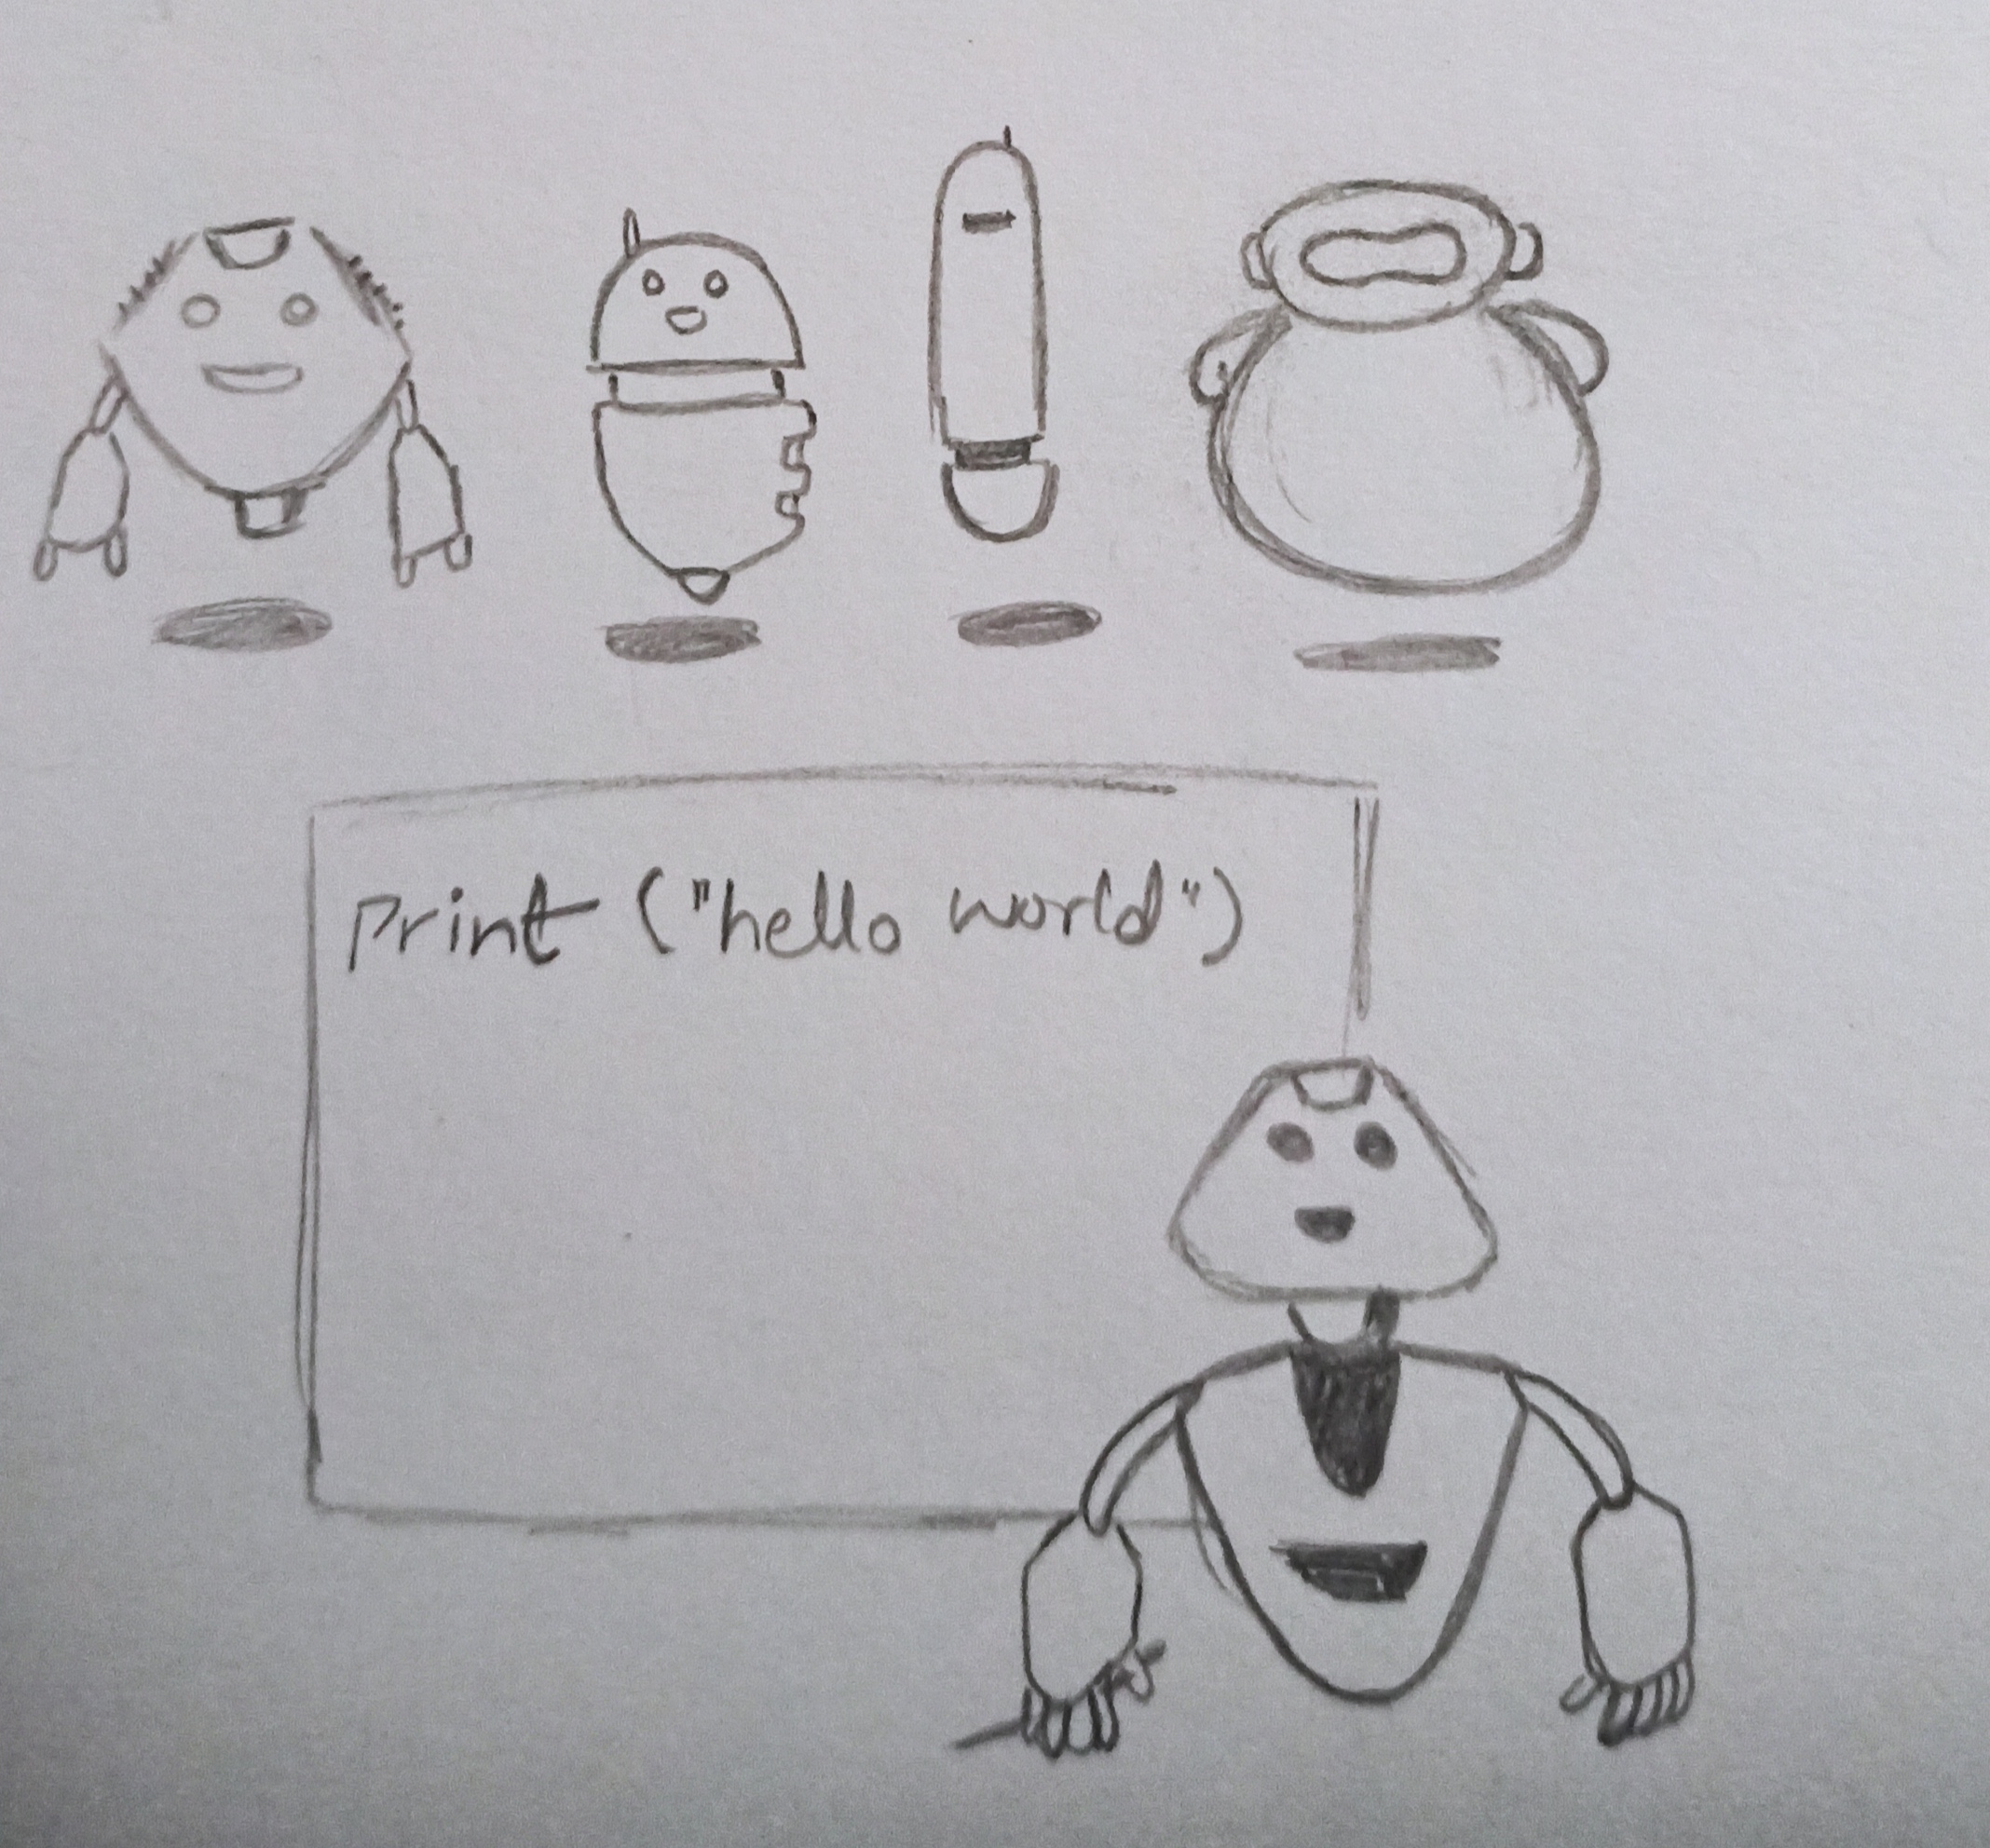 print ("hello world")